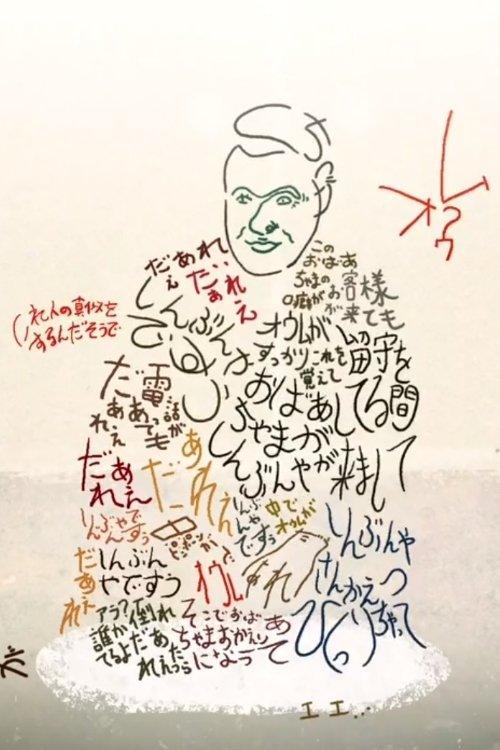 オウ
だぁれ
だぁれぇ
このおばあ
ちゃまの
口癖が
お客様
が来ても
れ人の真似を
するんだそうで
しんぶんや
オウムが
すっかりこれを
覚えて
留守を
してる間
おばあ
ちゃまが
しんぶんやが
来まして
電話が
あっても
だぁれぇ
だぁれぇ
あだれえ
しんぶんやで
すぅ
しんぶんやですぅ
中で
オウムが
だぁれぇ
しんぶん
やですう
ピンポーン
オウム
だれ
しんぶんや
さんかえっ
ひっくりちゃって
アラ?
誰か倒れ
てるよだぁ
れえったら
そこでおば
ちゃまおかえり
になって
あ
が
エエ..